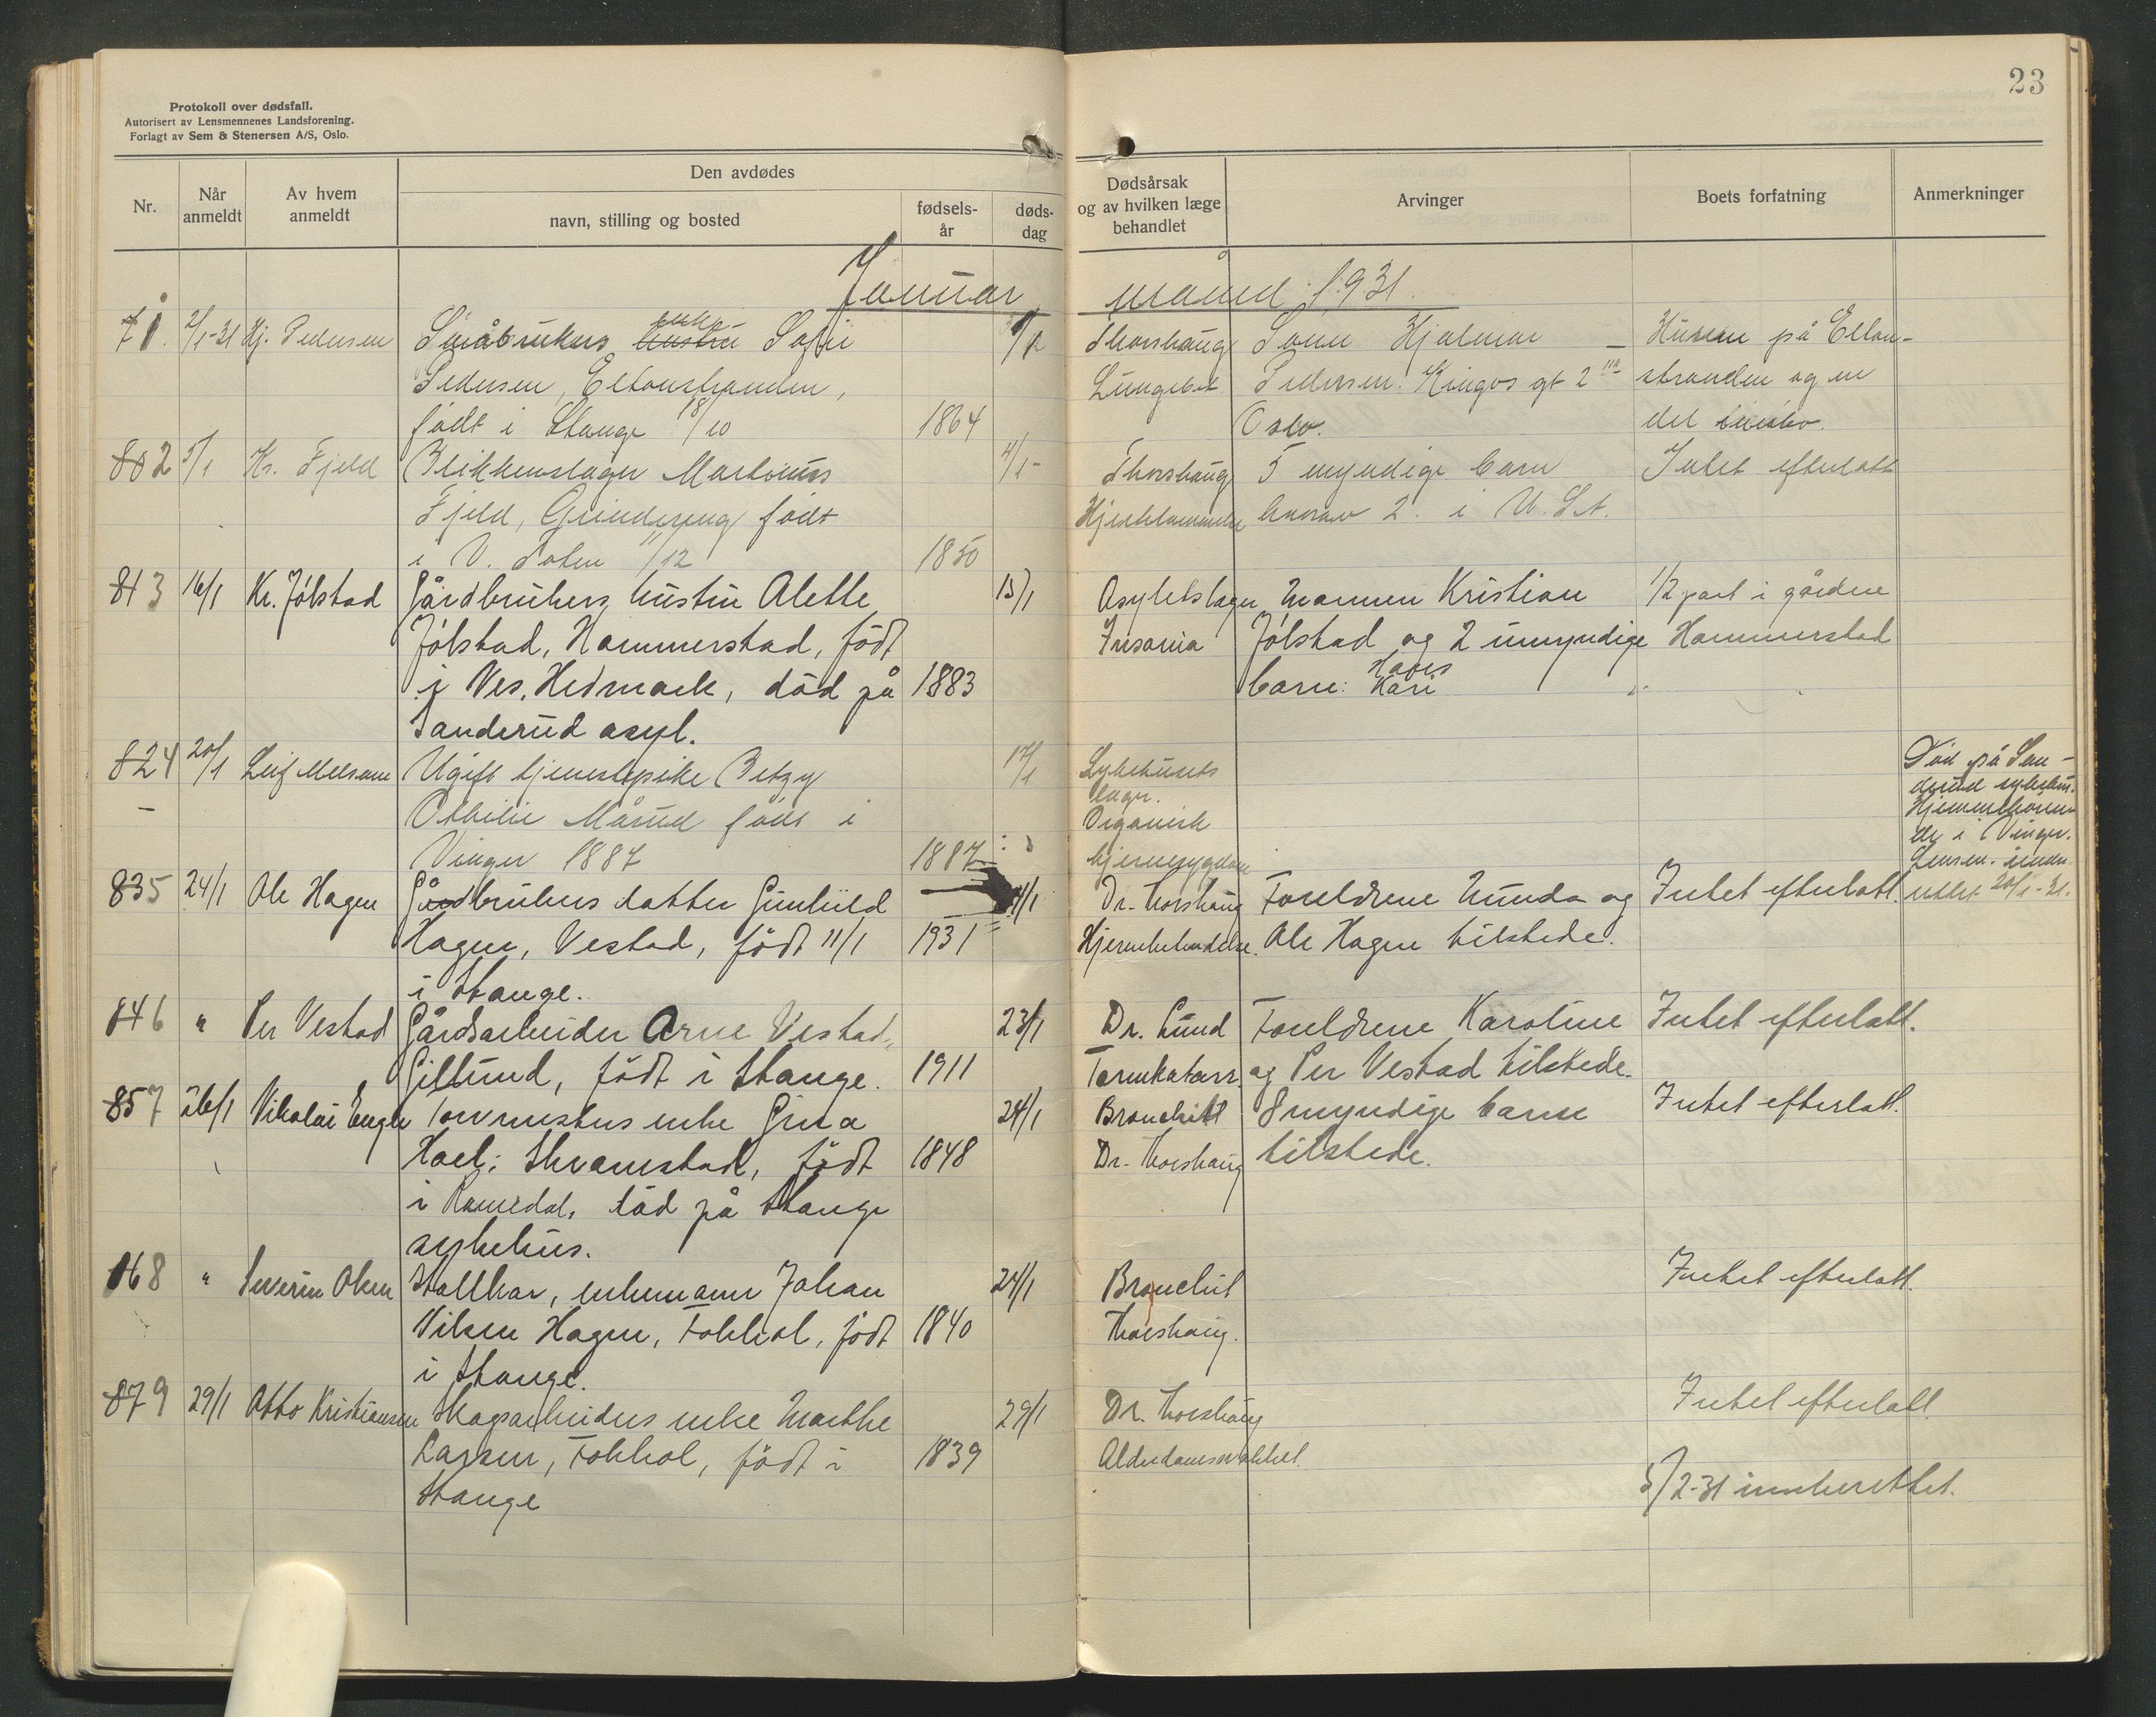 23
Protokoll over dødsfall.
Autorisert av Lensmennenes Landsforening.
Forlagt av Sem & Stenersen A/S, Oslo.
Nr.
Når anmeldt
Av hvem anmeldt
Den avdødes
navn, stilling og bosted
fødsels-år
døds-dag
Dødsårsak og av hvilken læge behandlet
Arvinger
Boets forfatning
Anmerkninger
Januar måned 1931.
1. 2/1-31 Hj. Pedersen Småbrukers enke Sofie Thorshaug Sønn Hjalmar Husene på Ellan-
Pedersen, Ellanstranden, Lungebet. Pedersen. Kingos gt 2 stranden og en
født i Stange 18/10 1864 Oslo. del innbo.
2 5/1 Kr. Fjeld Blikkenslager Martinus 4/1 Thorshaug 5 myndige barn Intet efterlatt
Fjeld, Grindereng født Hjerteklammelse hvorav 2 i U.S.A.
i V. Toten 11/12 1850
3 16/1 Kr. Jølstad Gårdbrukers hustru Alette 15/1 Asylets læge Mannen Kristian 1/2 part i gården
Jølstad, Hammerstad, født Insania Jølstad og 2 umyndige Hammerstad
i Ves. Hedmark, død på 1883 barn: Hans Kari
Sanderud asyl.
4 20/1 Leif Melsom Ugift tjenestepike Betzy 17/1 Sykehusets Død på San-
læge. derud sykehus.
Othilie Mårud født i Organisk Hjemmehøren-
de i Vinger.
Vinger 1887 1887 hjernesygdom Lensm. under-
5 24/1 Ole Hagen Gårdbrukers datter Gunhild Dr. Thorshaug Foreldrene Hunda og Intet efterlatt. rettet 20/1-31.
Hagen, Vestad, født 11/1 1931 Ole Hagen tilstede.
i Stange.
6 " Per Vestad Gårdsarbeider Arne Vestad, 23/1 Dr. Lund Foreldrene Karoline Intet efterlatt.
Gillund, født i Stange. 1911 Tarmkatarr. og Per Vestad tilstede.
7 26/1 Nikolai Engh enke Gina 24/1 Bronchitt 8 myndige barn Intet efterlatt.
Hoel, Skramstad, født 1848 Dr. Thorshaug tilstede.
i Romedal, død på Stange
sykehus.
8 " Severin Olsen Stallkar, enkemann Johan 24/1 Bronchit Intet efterlatt.
Nilsen Hagen, Fokhol, født 1840 Thorshaug.
i Stange.
9 29/1 Otto Kristiansen Skogsarbeiders enke Marthe 29/1 Dr. Thorshaug Intet efterlatt.
Larsen, Fokhol, født i 1839 Alderdomssvakhet.
Stange 5/2-31 innberettet.